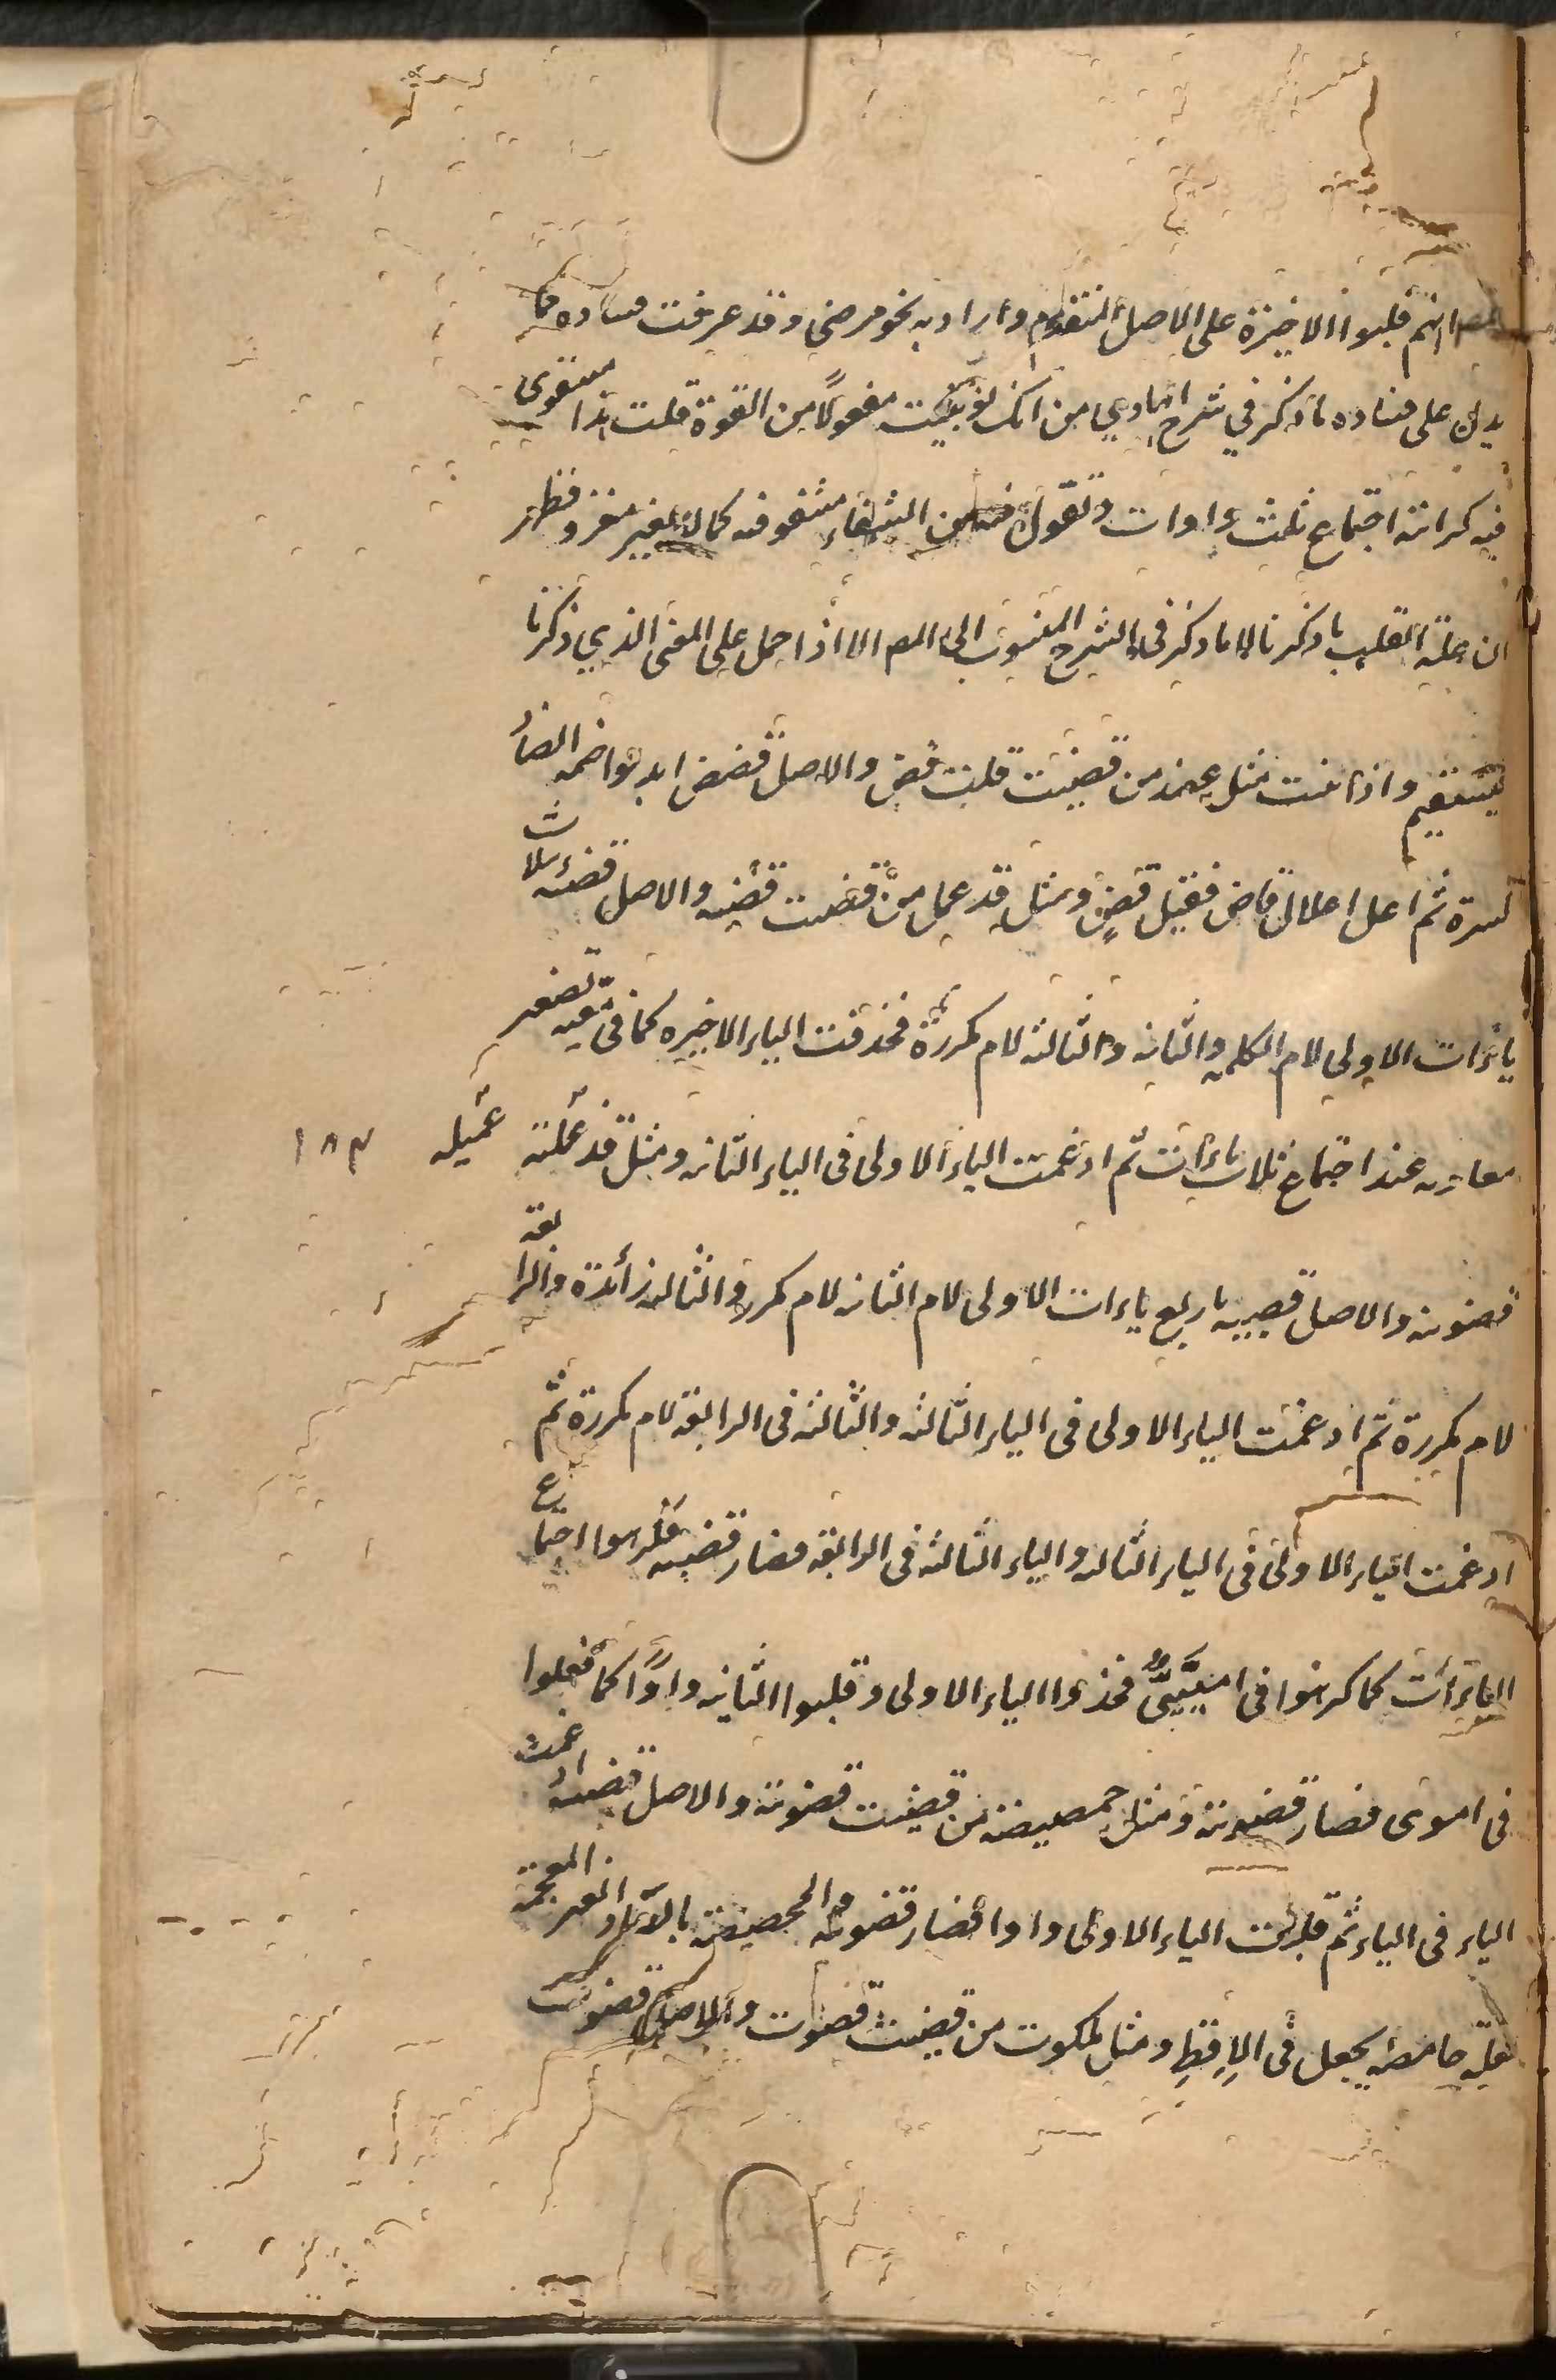 انهم قلبوا الاخيرة على الاصل المتقدم واراد به نحو مرضى وقد عرفت فساده مما
يدل على فساده ما ذكر في شرح الهادي من انك لو بنيت مفعولا من القوة قلت هذا مقوى
فيه كراهته اجتماع ثلث واوات وتقول من الشقاء مشقو فيه كما لا يغير مغزو فظهر
ان علة القلب ما ذكرنا لا ما ذكر فى الشرح المنسوب الى المص الا اذا حمل على المعنى الذي ذكرنا
يستقيم واذا بنيت مثل من قضيت قلت قضٍ والاصل قضضى ابدلوا ضمة الضاد
كسرة ثم اعل اعلال قاض فقيل قضٍ ومثل قذعمل من قضيت قضيه والاصل بثلاث
ياءات الاولى لام الكلمه والثانيه والثالثه لام مكررة فحذفت الياء الاخيره كما فى معيه تصغير
معاويه عند اجتماع ثلاث ياءات ثم ادغمت الياء الاولى فى الياء الثانيه ومثل قذعملة عميله ١٨٣
قضويه والاصل قضييه باربع ياءات الاولى لام الثانيه لام مكررة والثالثه زائدة والرابعة
لام مكررة ثم ادغمت الياء الاولى فى الياء الثالثه والثالثه فى الرابعة لام مكررة ثم
ادغمت الياء الاولى فى الياء الثالثه والياء الثالثه فى الرابعه فصار قضييه فكرهوا اجتماع
الياءات كما كرهوا فى امييّىٌّ فحذفوا الياء الاولى وقلبوا الثانيه واوًا كما فعلوا
فى اموى فصار قضوية ومثل حمصيصة من قضيت قضوية والاصل قضييه ادغمت
الياء فى الياء ثم قلبت الياء الاولى واوا فصار قضويه والحمصيصة بالصاد الغير المعجمة
بقلة حامضه يجعل فى الاقط ومثل ملكوت من قضيت قضوت والاصل قضيوت